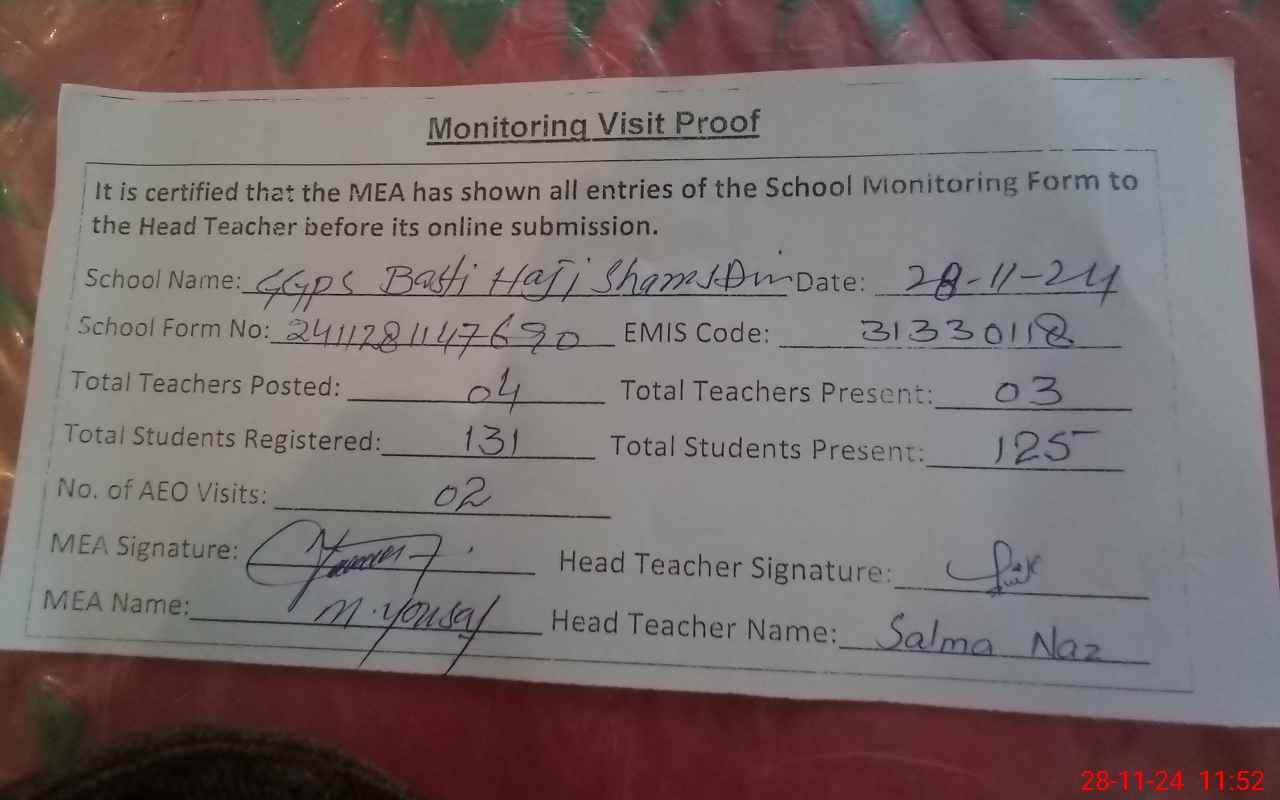 Monitoring Visit Proof
It is certified that the MEA has shown all entries of the School Monitoring Form to
the Head Teacher before its online submission.
School Name: GGPS Basti Haji ShamsDin Date: 28-11-24
School Form No: 241128114 7690 EMIS Code: 31330118
Total Teachers Posted: 04 Total Teachers Present: 03
Total Students Registered: 131 Total Students Present: 125
No. of AEO Visits: 02
MEA Signature: Head Teacher Signature:
MEA Name: M. Yousaf Head Teacher Name: Salma Naz
28-11-24 11:52